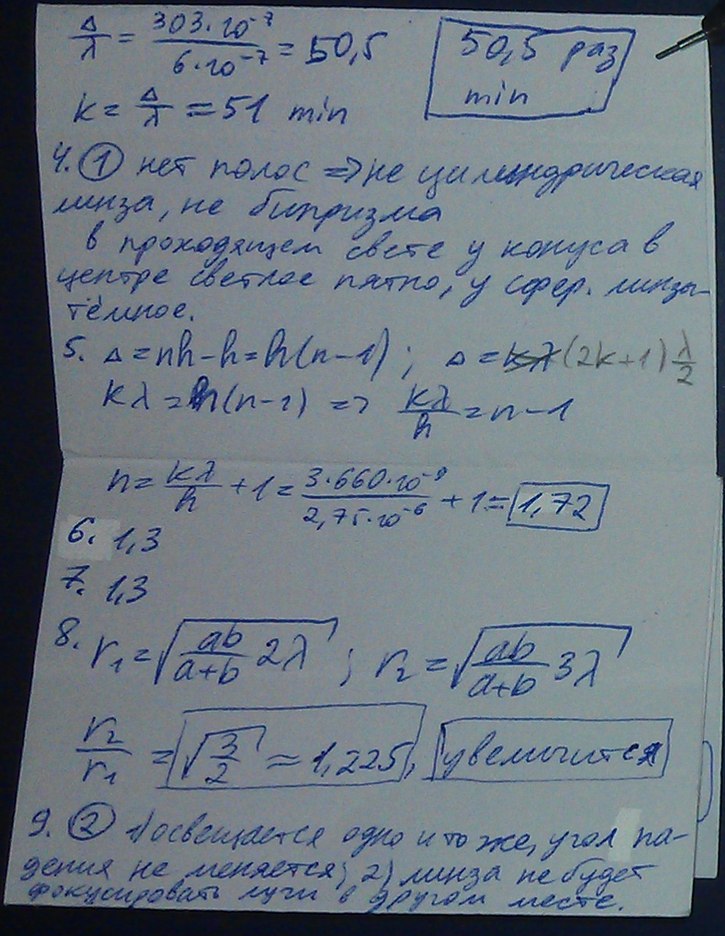 Δ/λ = 303·10⁻⁷ / 6·10⁻⁷ = 50,5
50,5 раз
min
k = Δ/λ = 51 min
4. ① нет полос => не цилиндрическая
линза, не бипризма
в проходящем свете у конуса в
центре светлое пятно, у сфер. линзы-
тёмное.
5. Δ = nh - h = h(n-1); Δ = kλ (2k+1) λ/2
kλ = h(n-1) => kλ/h = n-1
n = kλ/h + 1 = 3·660·10⁻⁹ / 2,75·10⁻⁶ + 1 = 1,72
6. 1,3
7. 1,3
8. r₁ = √(ab/(a+b) 2λ) ; r₂ = √(ab/(a+b) 3λ)
r₂/r₁ = √(3/2) = 1,225, увеличится
9. ② 1) освещается одно и то же, угол па-
дения не меняется; 2) линза не будет
фокусировать лучи в другом месте.